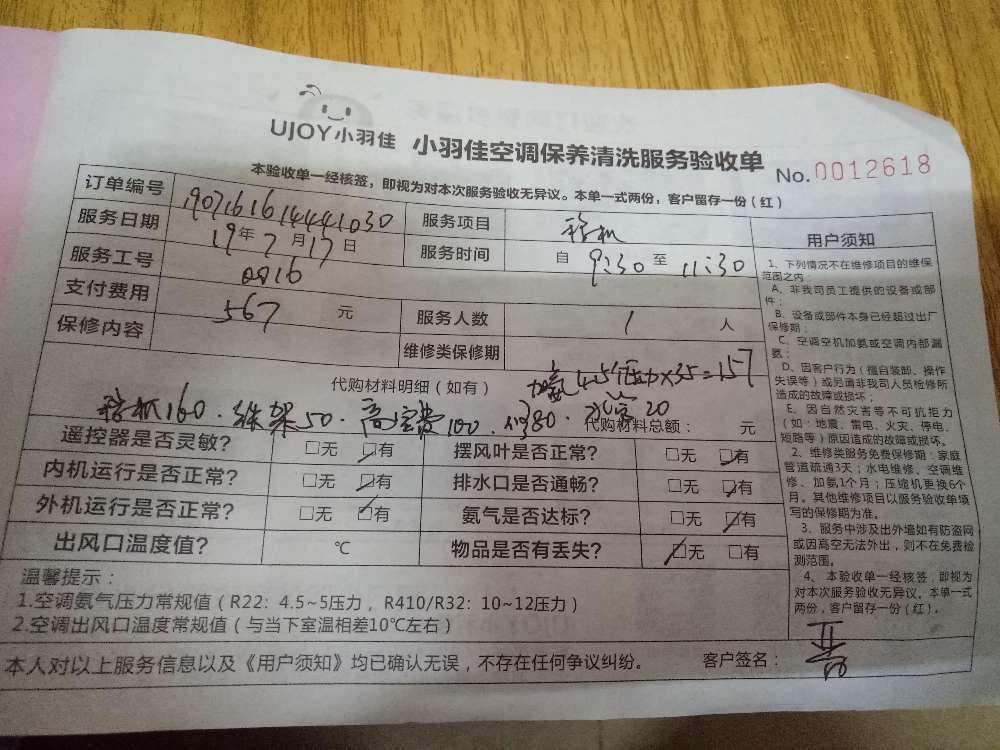 UJOY小羽佳 小羽佳空调保养清洗服务验收单 No.0012618
本验收单一经核签，即视为对本次服务验收无异议。本单一式两份，客户留存一份（红）
订单编号 服务项目 移机
服务日期 19年7月17日 服务时间 自 9:30 至 11:30
服务工号 0816
支付费用 567 元 服务人数 1 人
保修内容 维修类保修期
代购材料明细（如有） 加氨4.5压力×35=157
移机160．铁架50．高空费100．．水泥20
代购材料总额： 元
遥控器是否灵敏？ □无 ☑有 摆风叶是否正常？ □无 ☑有
内机运行是否正常？ □无 ☑有 排水口是否通畅？ □无 ☑有
外机运行是否正常？ □无 ☑有 氨气是否达标？ □无 ☑有
出风口温度值？ ℃ 物品是否有丢失？ ☑无 □有
温馨提示：
1.空调氨气压力常规值（R22：4.5~5压力，R410/R32：10~12压力）
2.空调出风口温度常规值（与当下室温相差10℃左右）
本人对以上服务信息以及《用户须知》均已确认无误，不存在任何争议纠纷。 客户签名：
用户须知
1、下列情况不在维修项目的维保
范围之内：
A、非我司员工提供的设备或部
件；
B、设备或部件本身已经超过出厂
保修期；
C、空调空机加氨或空调内部漏
氨；
D、因客户行为（擅自装卸、操作
失误等）或另请非我司人员检修所
造成的故障或损坏；
E、因自然灾害等不可抗拒力
（如：地震、雷电、火灾、停电、
短路等）原因造成的故障或损坏。
2、维修类服务免费保修期：家庭
管道疏通3天；水电维修、空调维
修、加氨1个月；压缩机更换6个
月。其他维修项目以服务验收单填
写的保修期为准。
3、服务中涉及出外墙如有防盗网
或因高空无法外出，则不在免费检
测范围。
4、本验收单一经核签，即视为
对本次服务验收无异议。本单一式
两份，客户留存一份（红）。